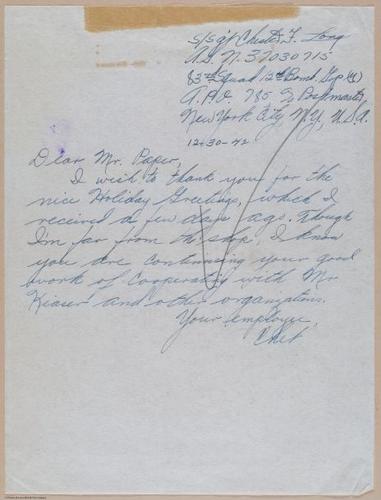 S/Sgt Chester F. Long
A.S.N. 37030715
83rd Squad 12th Bomb. Grp (L)
A.P.O. 785 % Postmaster
New York City, N.Y., U.S.A.
12-30-42
Dear Mr. Paper,
I wish to thank you for the
nice Holiday Greetings, which I
received a few days ago. Though
I'm far from the shop, I know
you are continuing your good
work of cooperating with Mr.
Kiaser and other organizations.
Your employee,
Chet